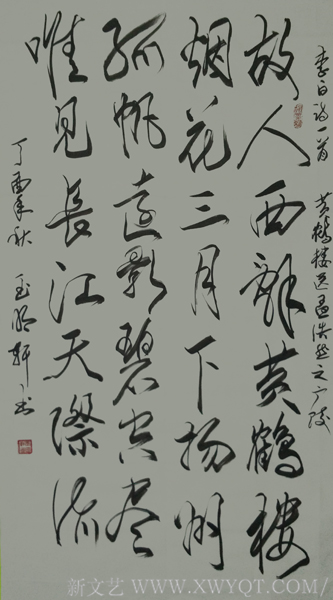 李白诗一首 黄鹤楼送孟浩然之广陵
故人西辞黄鹤楼
烟花三月下扬州
孤帆远影碧空尽
唯见長江天際流
丁酉年秋 玉明轩书
新文艺 WWW.XWYQT.COM/